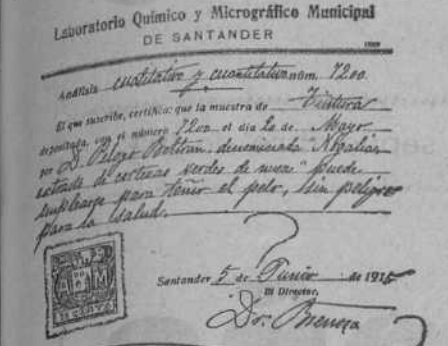 Laboratorio Químico y Micrográfico Municipal
DE SANTANDER
Análisis cualitativo y cuantitativo núm. 7200.
El que suscribe, certifica: que la muestra de Tintura
depositada, con el número 7200 el día 20 de Mayo
por D. Pelayo Beltrán, denominada "Nogalina
extracto de cortezas verdes de nuez" puede
emplearse para teñir el pelo, sin peligro
para la salud.
Santander 5 de Junio de 1915
El Director,
Dr. Breñosa